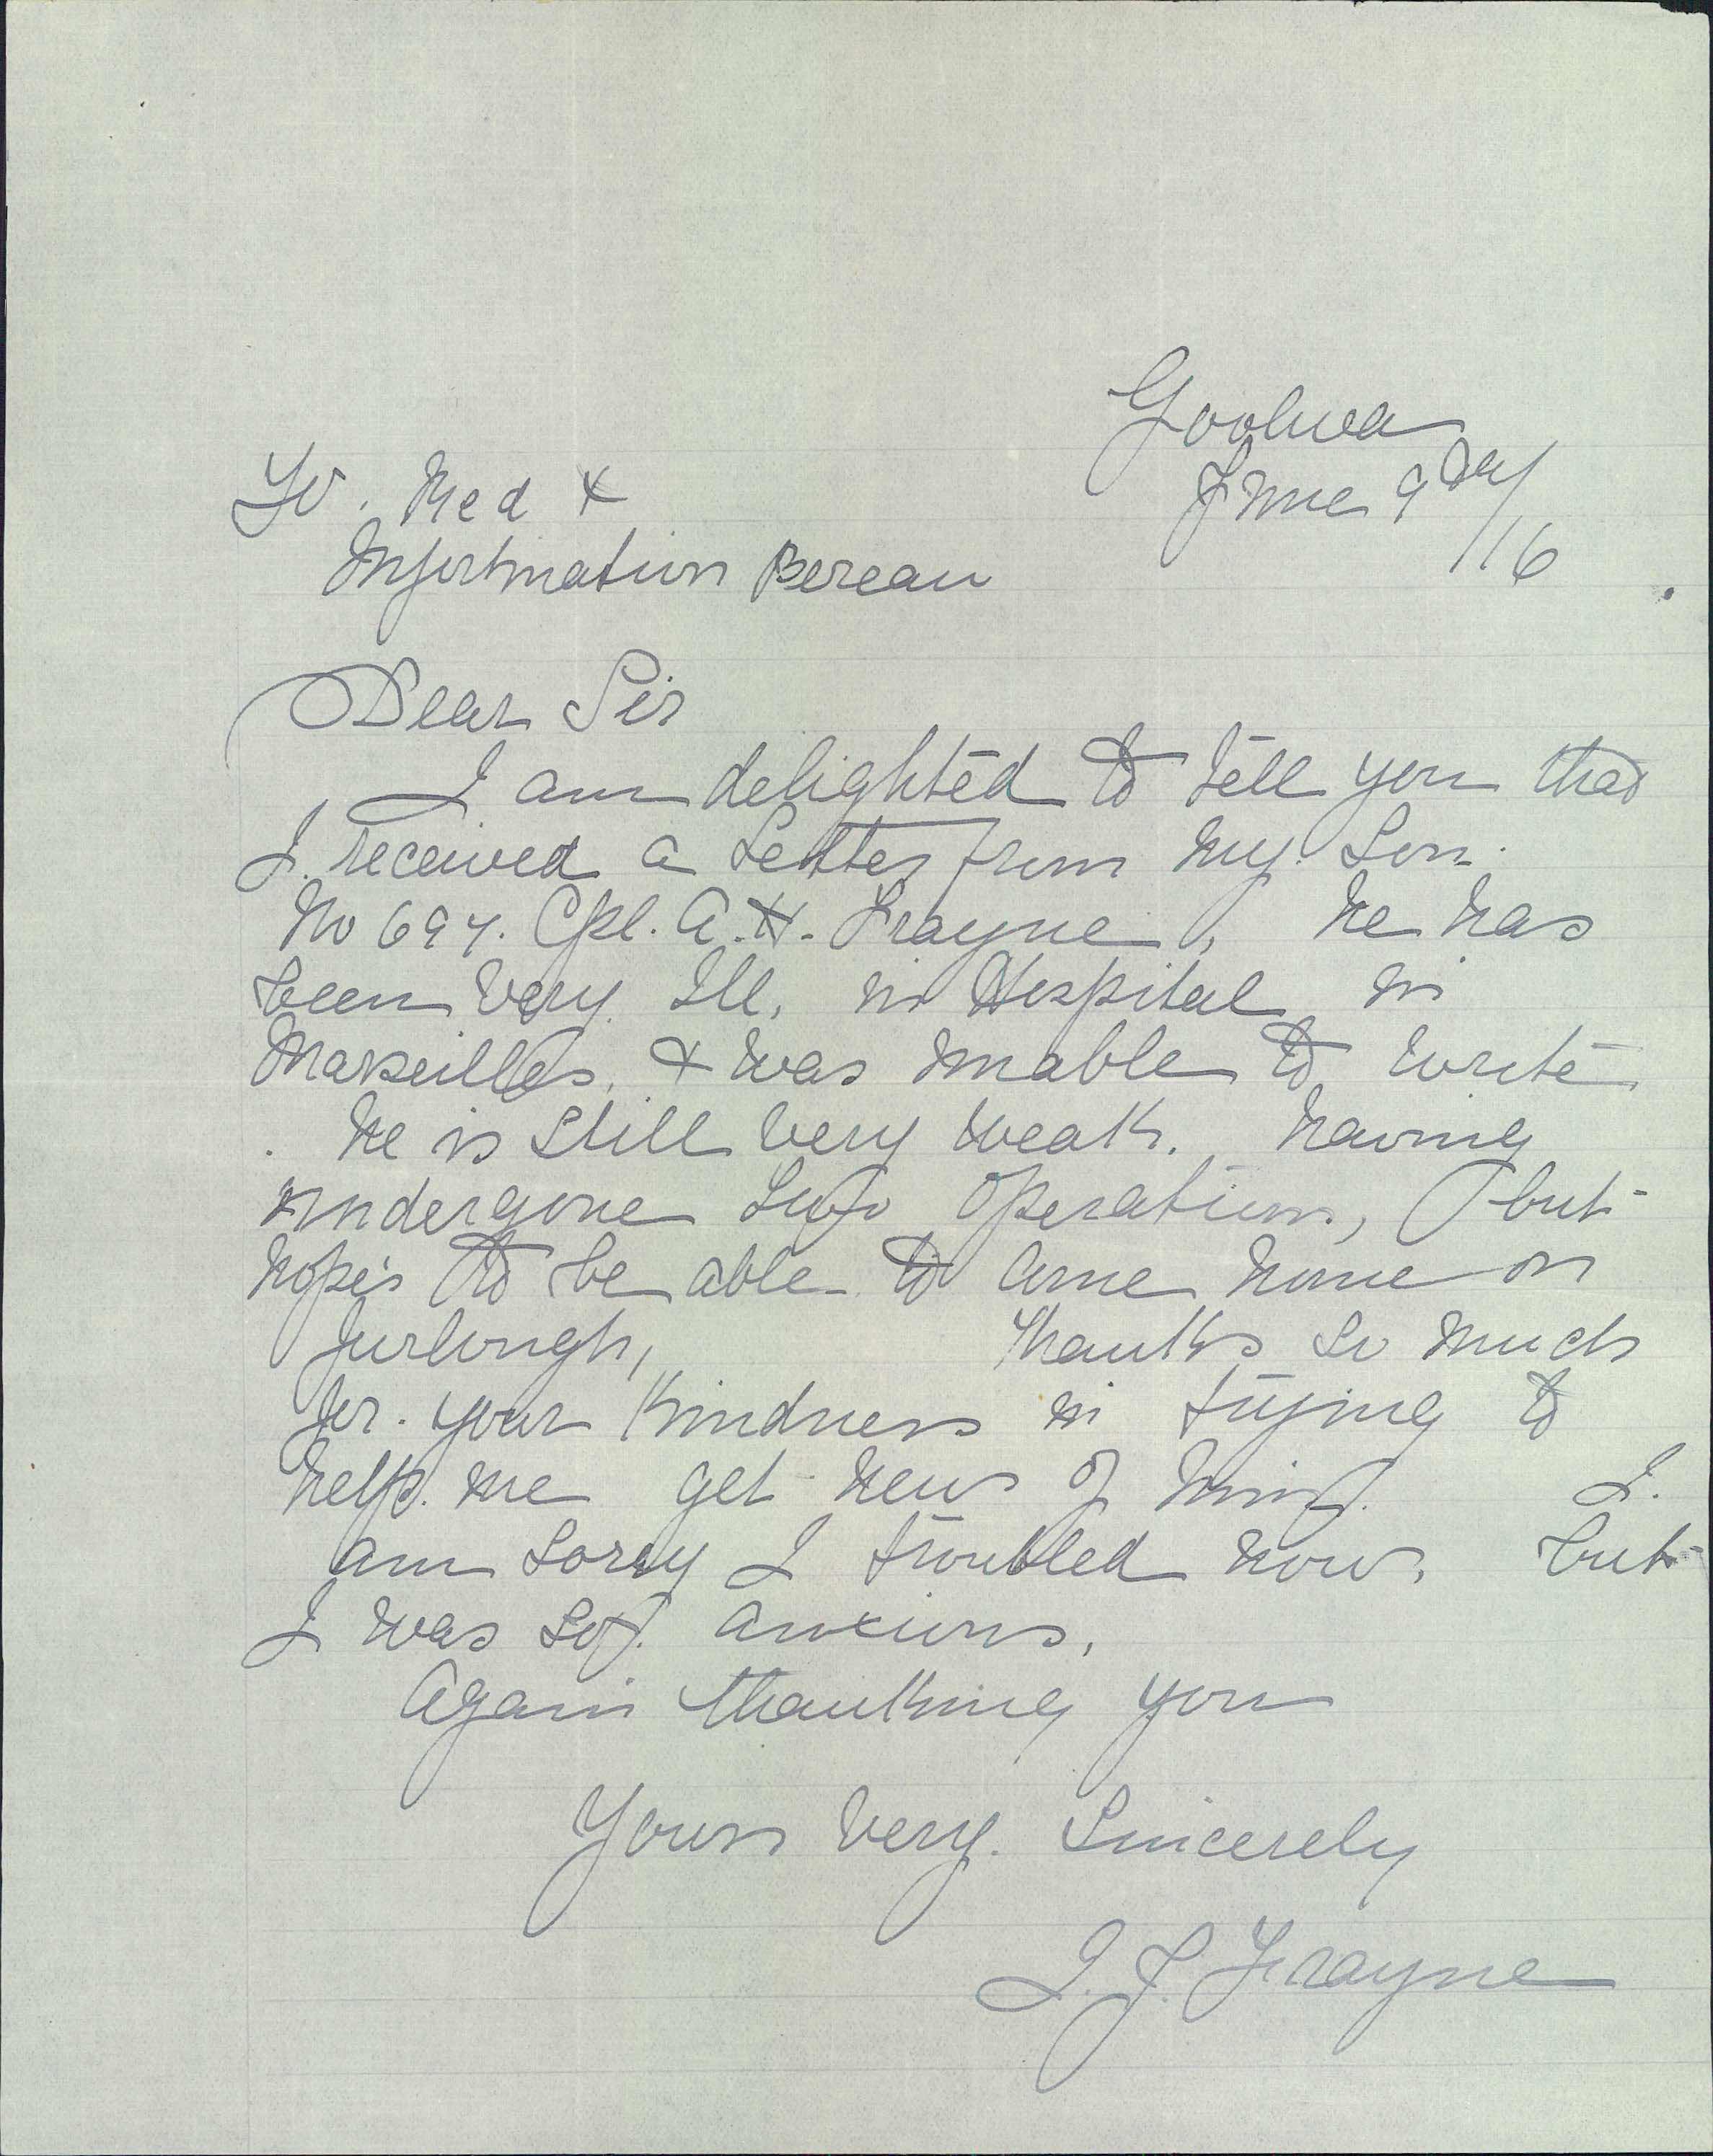 Goolwa
June 9th/
/16
To. Red X
Information Bereau
Dear Sir
I am delighted to tell you that
I. received a Letter from my. Son.
No 697. Cpl. A. H. Frayne, he has
been very Ill, in Hospital in
Marseilles, & was unable to write
. he is Still very weak. having
undergone two operations, but
hopes to be able to come home on
furlough, Thanks so much
for. your Kindness in trying to
help. me get news of him. I.
am sorry I troubled now, but
I was so. anxious,
Again thanking you
Yours very. Sincerely
I. J. Frayne